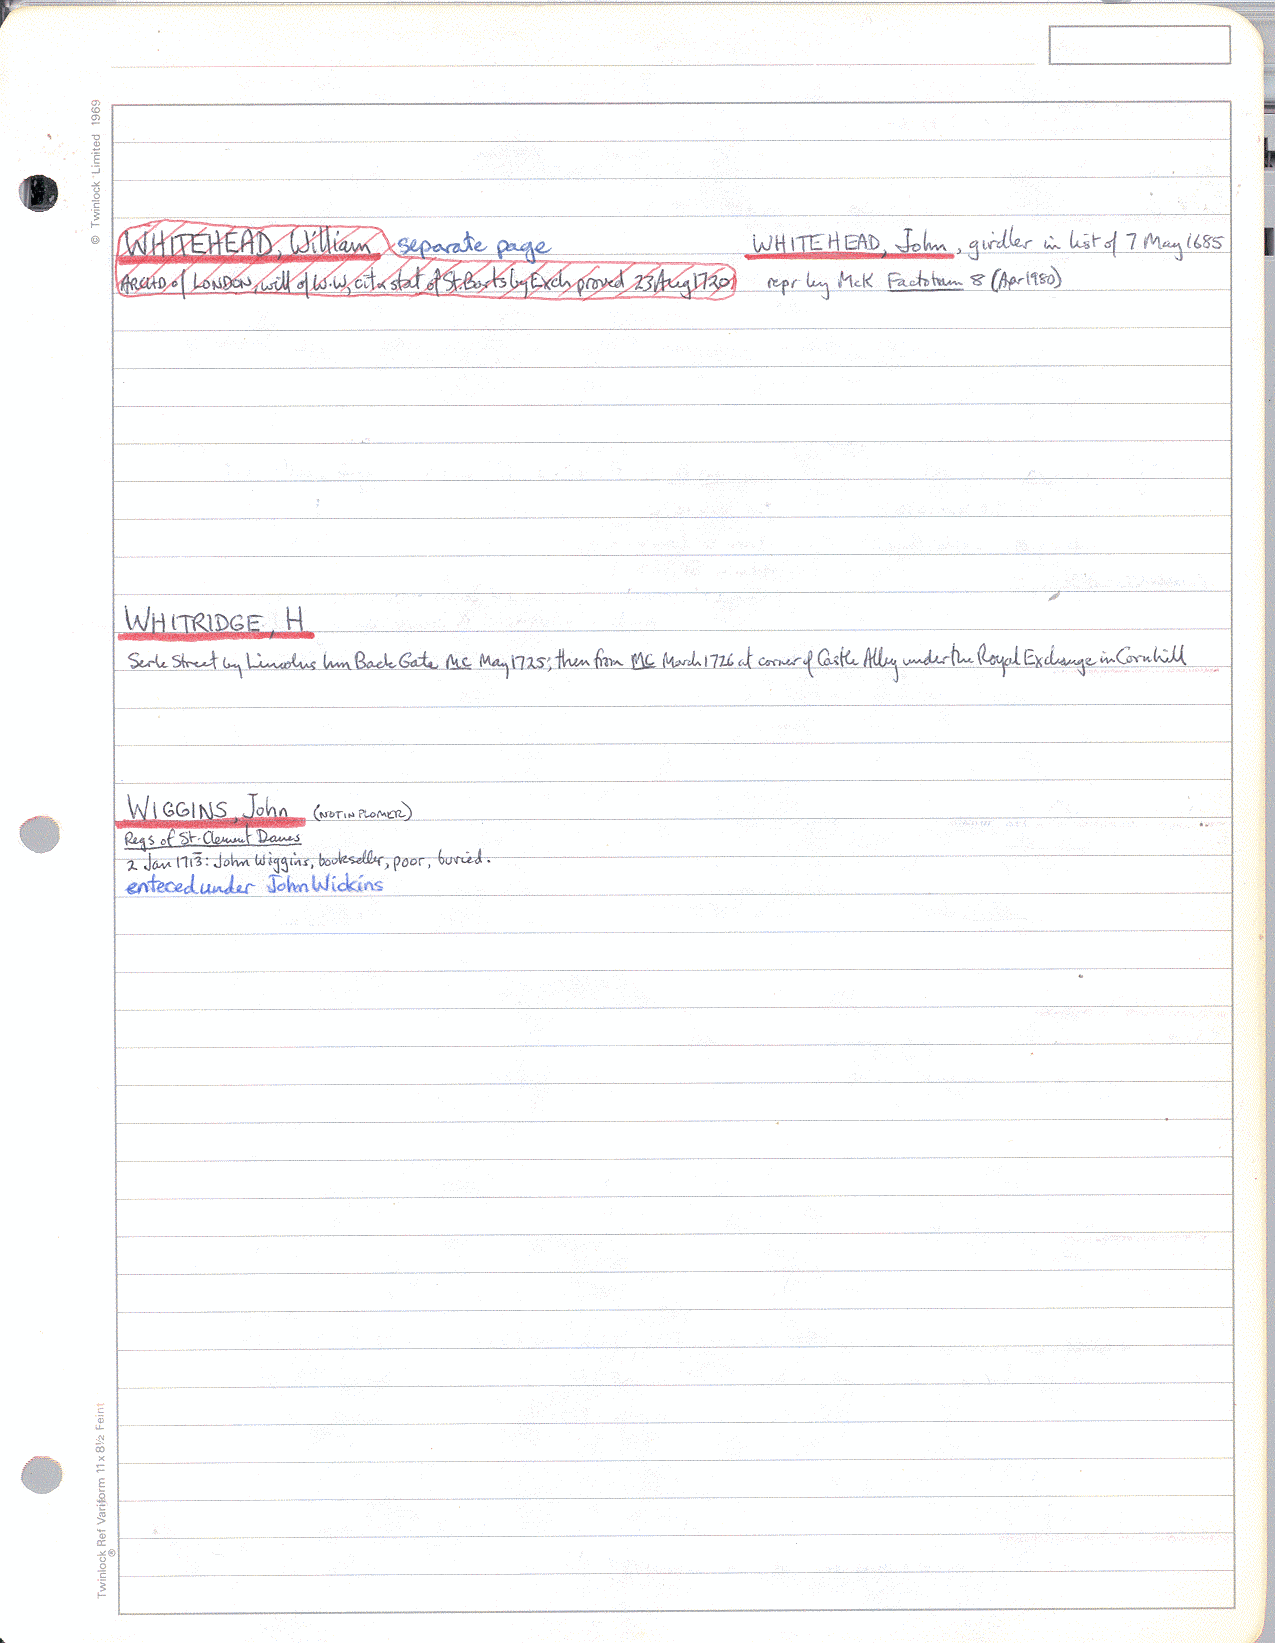 © Twinlock Limited 1969
WHITEHEAD, William separate page
ARCHD of LONDON, will of W.W, cit & stat of St. Barts by Exch proved 23 Aug 1720
WHITEHEAD, John, girdler in list of 7 May 1685
repr by McK Factotum 8 (Apr 1980)
WHITRIDGE, H
Serle Street by Lincolns Inn Back Gate MC May 1725; then from MC March 1726 at corner of Castle Alley under the Royal Exchange in Cornhill
WIGGINS, John (NOT IN PLOMER)
Regs of St. Clement Danes
2 Jan 1713: John Wiggins, bookseller, poor, buried.
entered under John Wickins
Twinlock Ref Variform 11 x 8½ Feint
®